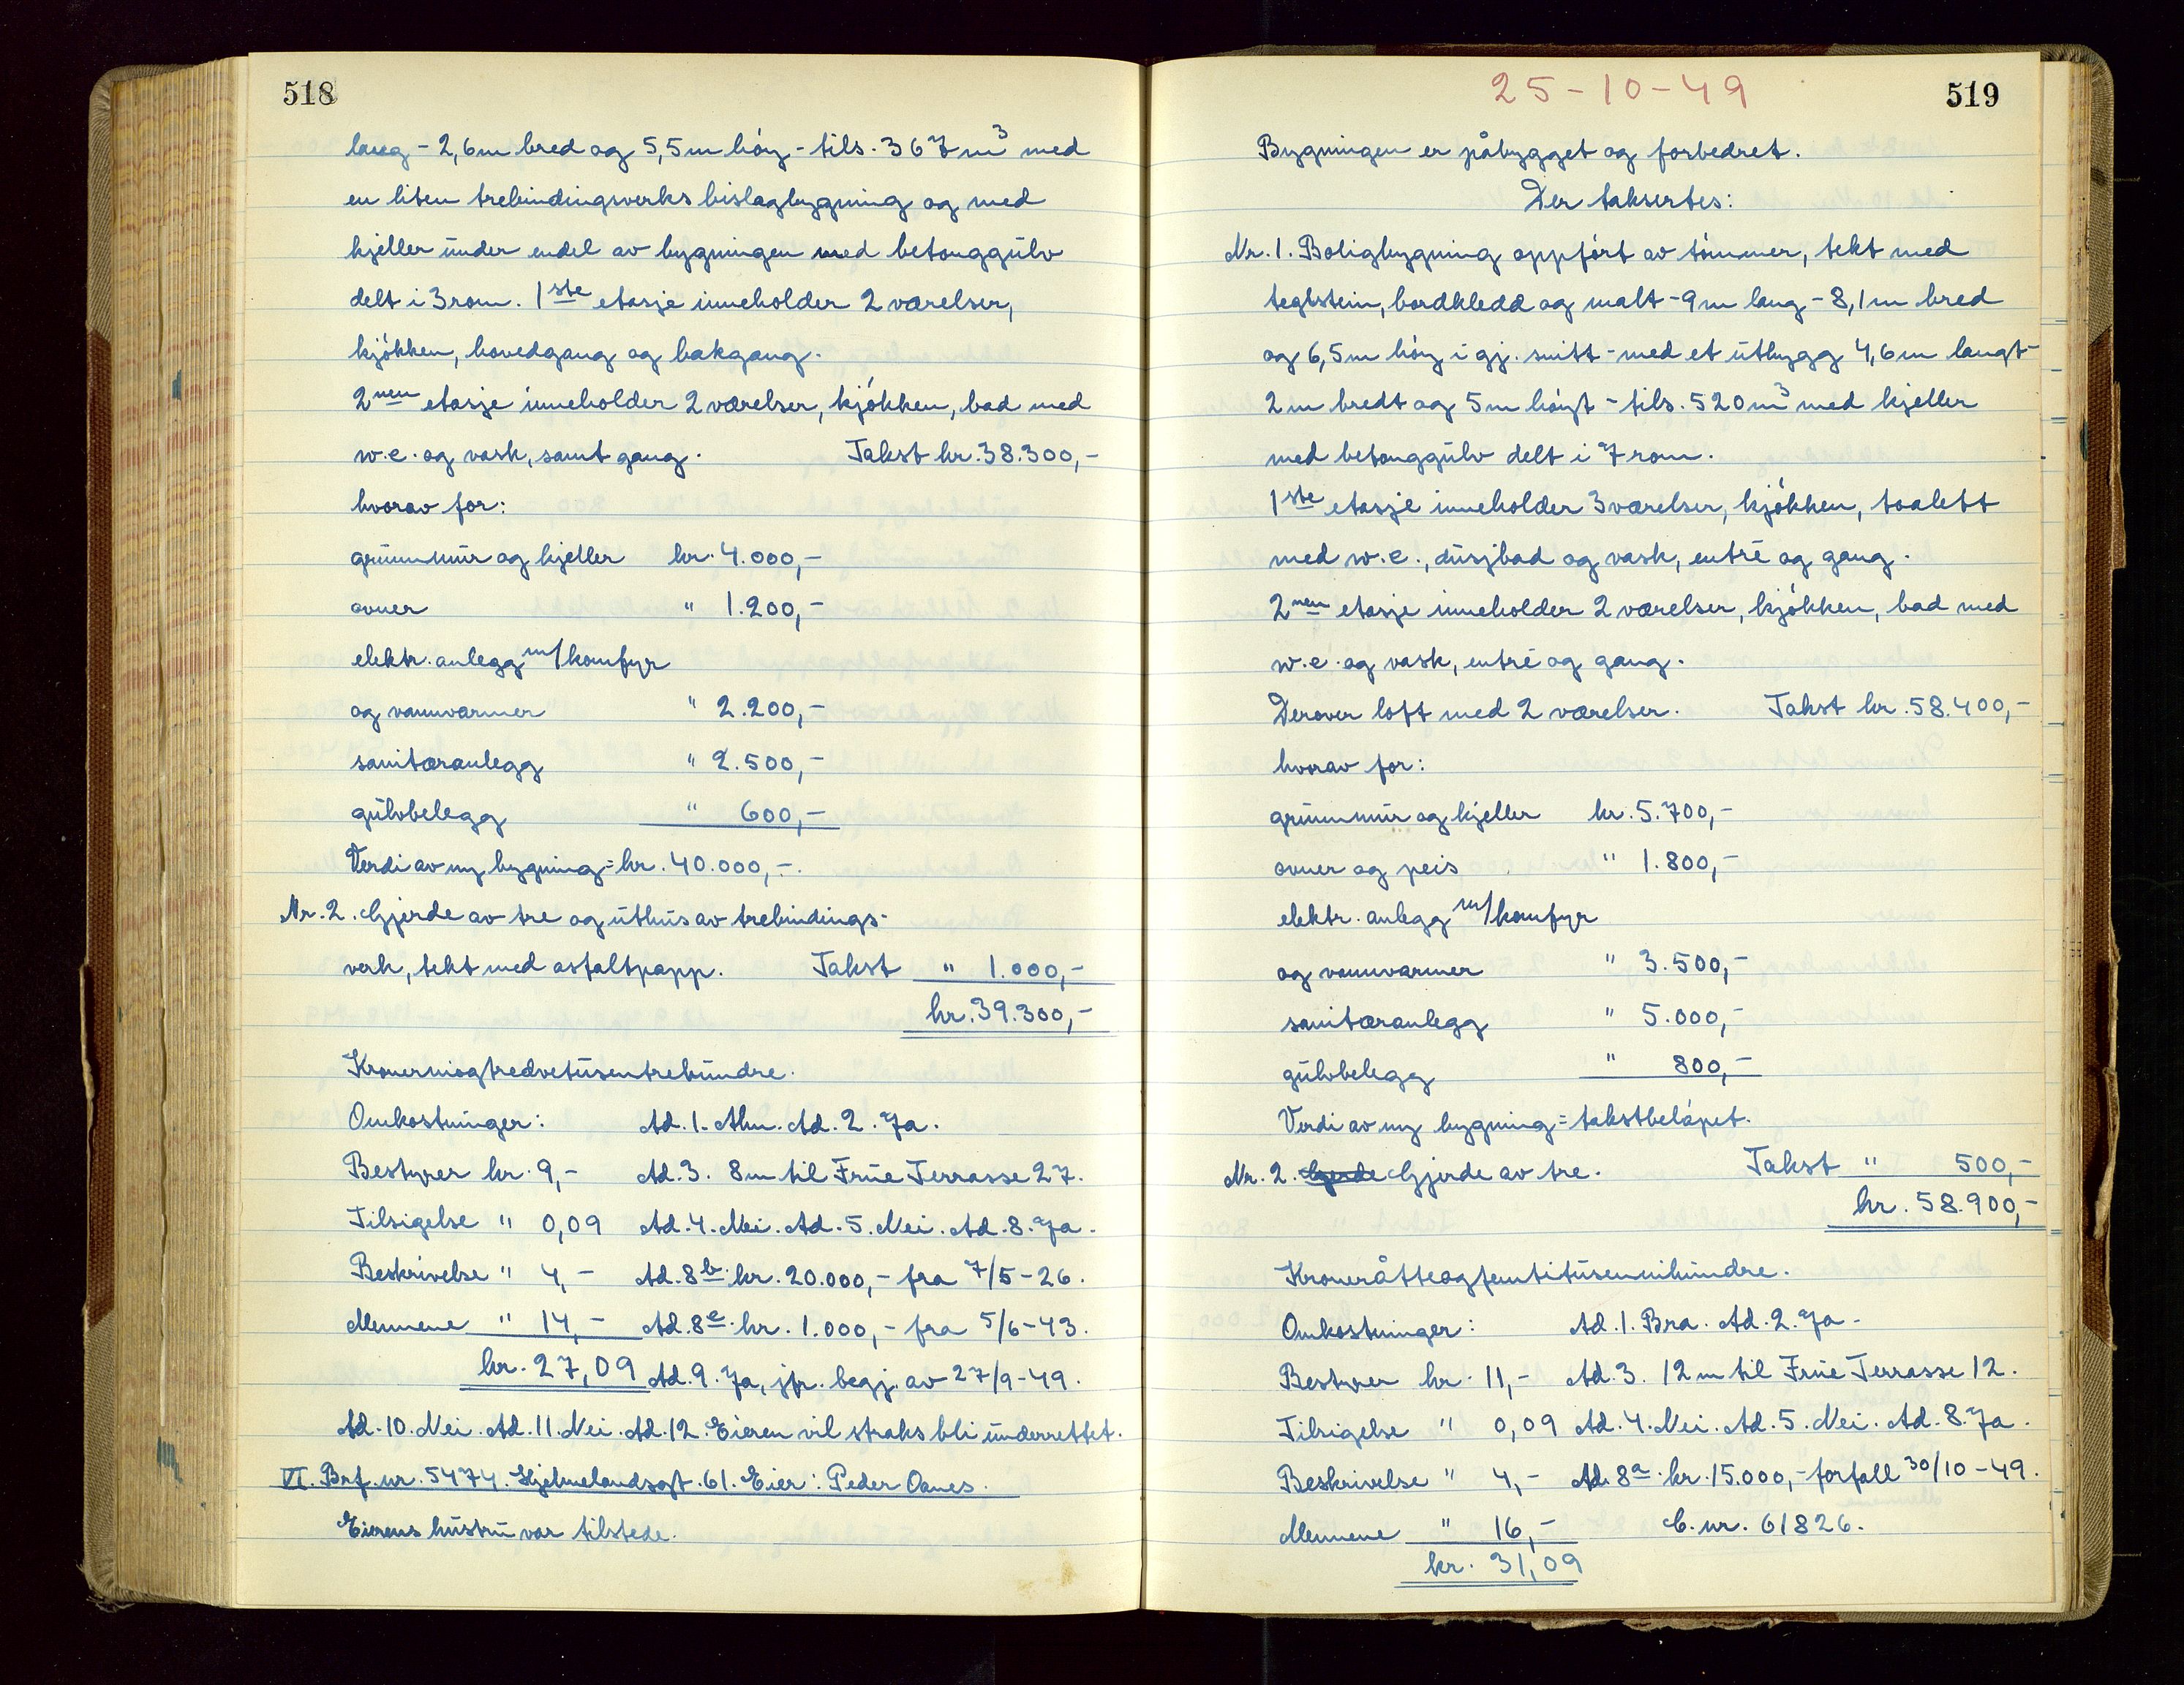 518
lang - 2,6m bred og 5,5m høy - tils. 367 m³ med
en liten trebindingsverks bislagbygning og med
kjeller under endel av bygningen med betonggulv
delt i 3 rom. 1ste etasje inneholder 2 værelser,
kjøkken, hovedgang og bakgang.
2nen etasje inneholder 2 værelser, kjøkken, bad med
w.c. og vask, samt gang. Takst kr. 38.300,-
hvorav for:
grunnmur og kjeller kr. 4.000,-
ovner " 1.200,-
elektr. anlegg m/komfyr
og vannvarmer " 2.200,-
sanitæranlegg " 2.500,-
gulvbelegg " 600,-
Verdi av ny bygning = kr. 40.000,-.
Nr. 2. Gjerde av tre og uthus av trebindings-
verk, tekt med asfaltpapp. Takst " 1.000,-
kr. 39.300,-
Kronerniogtredvetusentrehundre.
Omkostninger: Ad. 1. Alm. Ad. 2. Ja.
Bestyrer kr. 9,- Ad. 3. 8m til Frue Terrasse 27.
Tilsigelse " 0,09 Ad. 4. Nei. Ad. 5. Nei. Ad. 8. Ja.
Beskrivelse " 4,- Ad. 8b. kr. 20.000,- fra 7/5-26.
Mennene " 14,- Ad. 8c. kr. 1.000,- fra 5/6-43.
kr. 27,09 Ad. 9. Ja, jfr. begj. av 27/9-49.
Ad. 10. Nei. Ad. 11. Nei. Ad. 12. Eieren vil straks bli underrettet.
VI. Brf. nr. 5474. Hjelmelandsgt. 61. Eier: Peder Oanes.
Eierens hustru var tilstede.
25-10-49
519
Bygningen er påbygget og forbedret.
Der taksertes:
Nr. 1. Boligbygning oppført av tømmer, tekt med
teglstein, bordkledd og malt - 9m lang - 8,1m bred
og 6,5m høy i gj. snitt - med et utbygg 4,6m langt -
2m bredt og 5m høyt - tils. 520 m³ med kjeller
med betonggulv delt i 7 rom.
1ste etasje inneholder 3 værelser, kjøkken, toalett
med w.c., dusjbad og vask, entré og gang.
2nen etasje inneholder 2 værelser, kjøkken, bad med
w.c. og vask, entré og gang.
Derover loft med 2 værelser. Takst kr. 58.400,-
hvorav for:
grunnmur og kjeller kr. 5.700,-
ovner og peis " 1.800,-
elektr. anlegg m/komfyr
og vannvarmer " 3.500,-
sanitæranlegg " 5.000,-
gulvbelegg " 800,-
Verdi av ny bygning = takstbeløpet.
Nr. 2. Gjerde Gjerde av tre. Takst " 500,-
kr. 58.900,-
Kroneråtteogfemtitusennihundre.
Omkostninger: Ad. 1. Bra. Ad. 2. Ja.
Bestyrer kr. 11,- Ad. 3. 12m til Frue Terrasse 12.
Tilsigelse " 0,09 Ad. 4. Nei. Ad. 5. Nei. Ad. 8. Ja.
Beskrivelse " 4,- Ad. 8a. kr. 15.000,- forfall 30/10-49.
Mennene " 16,- C. nr. 61826.
kr. 31,09